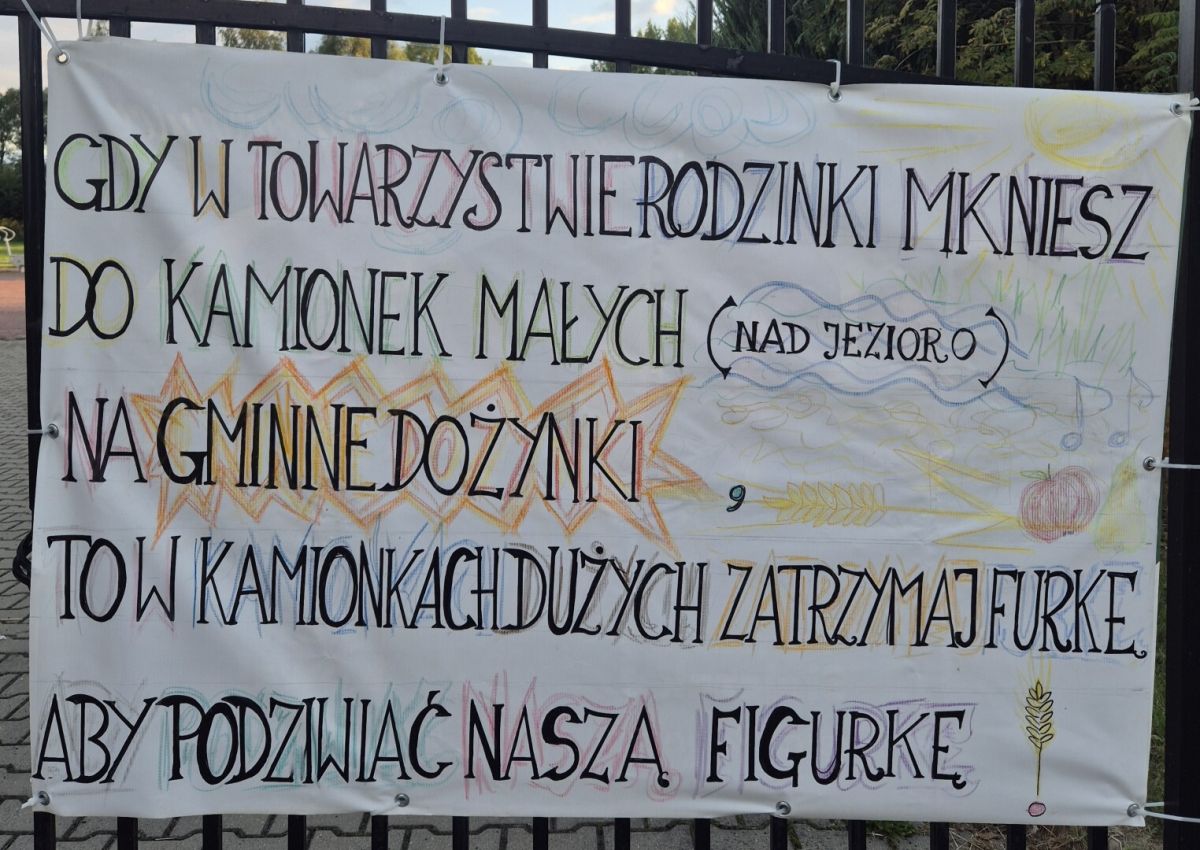 GDY W TOWARZYSTWIE RODZINKI MKNIESZ
DO KAMIONEK MAŁYCH (NAD JEZIORO)
NA GMINNE DOŻYNKI,
TO W KAMIONKACH DUŻYCH ZATRZYMAJ FURKĘ
ABY PODZIWIAĆ NASZĄ FIGURKĘ